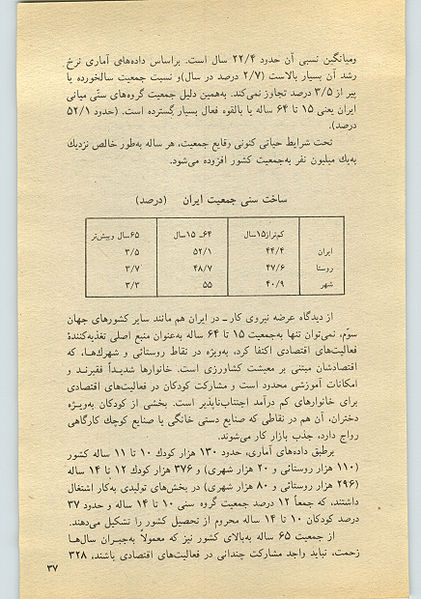 ومیانگین نسبی آن حدود ۲۲/۴ سال است. براساس داده‌های آماری نرخ
رشد آن بسیار بالاست (۲/۷ درصد در سال)و نسبت جمعیت سالخورده یا
پیر از ۳/۵ درصد تجاوز نمی‌کند. به‌همین دلیل جمعیت گروه‌های سنّی میانی
ایران یعنی ۱۵ تا ۶۴ ساله یا بالقوه فعال بسیار گسترده است. (حدود ۵۲/۱
درصد).
تحت شرایط حیاتی کنونی وقایع جمعیت، هر ساله به‌طور خالص نزدیك
به‌یك میلیون نفر به‌جمعیت کشور افزوده می‌شود.
ساخت سنی جمعیت ایران (درصد)
کمتراز۱۵سال ۶۴ـ ۱۵سال ۶۵سال وبیش‌تر
ایران ۴۴/۴ ۵۲/۱ ۳/۵
روستا ۴۷/۶ ۴۸/۷ ۳/۷
شهر ۴۰/۹ ۵۵ ۳/۳
از دیدگاه عرضه نیروی کار ـ در ایران هم مانند سایر کشورهای جهان
سوّم، نمی‌توان تنها به‌جمعیت ۱۵ تا ۶۴ ساله به‌عنوان منبع اصلی تغذیه‌کنندهٔ
فعالیت‌های اقتصادی اکتفا کرد، به‌ویژه در نقاط روستائی و شهرك‌ها، که
اقتصادشان مبتنی بر معیشت کشاورزی است. خانوارها شدیداً فقیرند و
امکانات آموزشی محدود است و مشارکت کودکان در فعالیت‌های اقتصادی
برای خانوارهای کم درآمد اجتناب‌ناپذیر است. بخشی از کودکان به‌ویژه
دختران، آن هم در نقاطی که صنایع دستی خانگی یا صنایع کوچك کارگاهی
رواج دارد، جذب بازار کار می‌شوند.
برطبق داده‌های آماری، حدود ۱۳۰ هزار کودك ۱۰ تا ۱۱ ساله کشور
(۱۱۰ هزار روستائی و ۲۰ هزار شهری) و ۳۷۶ هزار کودك ۱۲ تا ۱۴ ساله
(۲۹۶ هزار روستائی و ۸۰ هزار شهری) در بخش‌های تولیدی به‌کار اشتغال
داشتند، که جمعاً ۱۲ درصد جمعیت گروه سنی ۱۰ تا ۱۴ ساله و حدود ۳۷
درصد کودکان ۱۰ تا ۱۴ ساله محروم از تحصیل کشور را تشکیل می‌دهند.
از جمعیت ۶۵ ساله به‌بالای کشور نیز که معمولاً به‌جبران سال‌ها
زحمت، نباید واجد مشارکت چندانی در فعالیت‌های اقتصادی باشند، ۳۲۸
۳۷